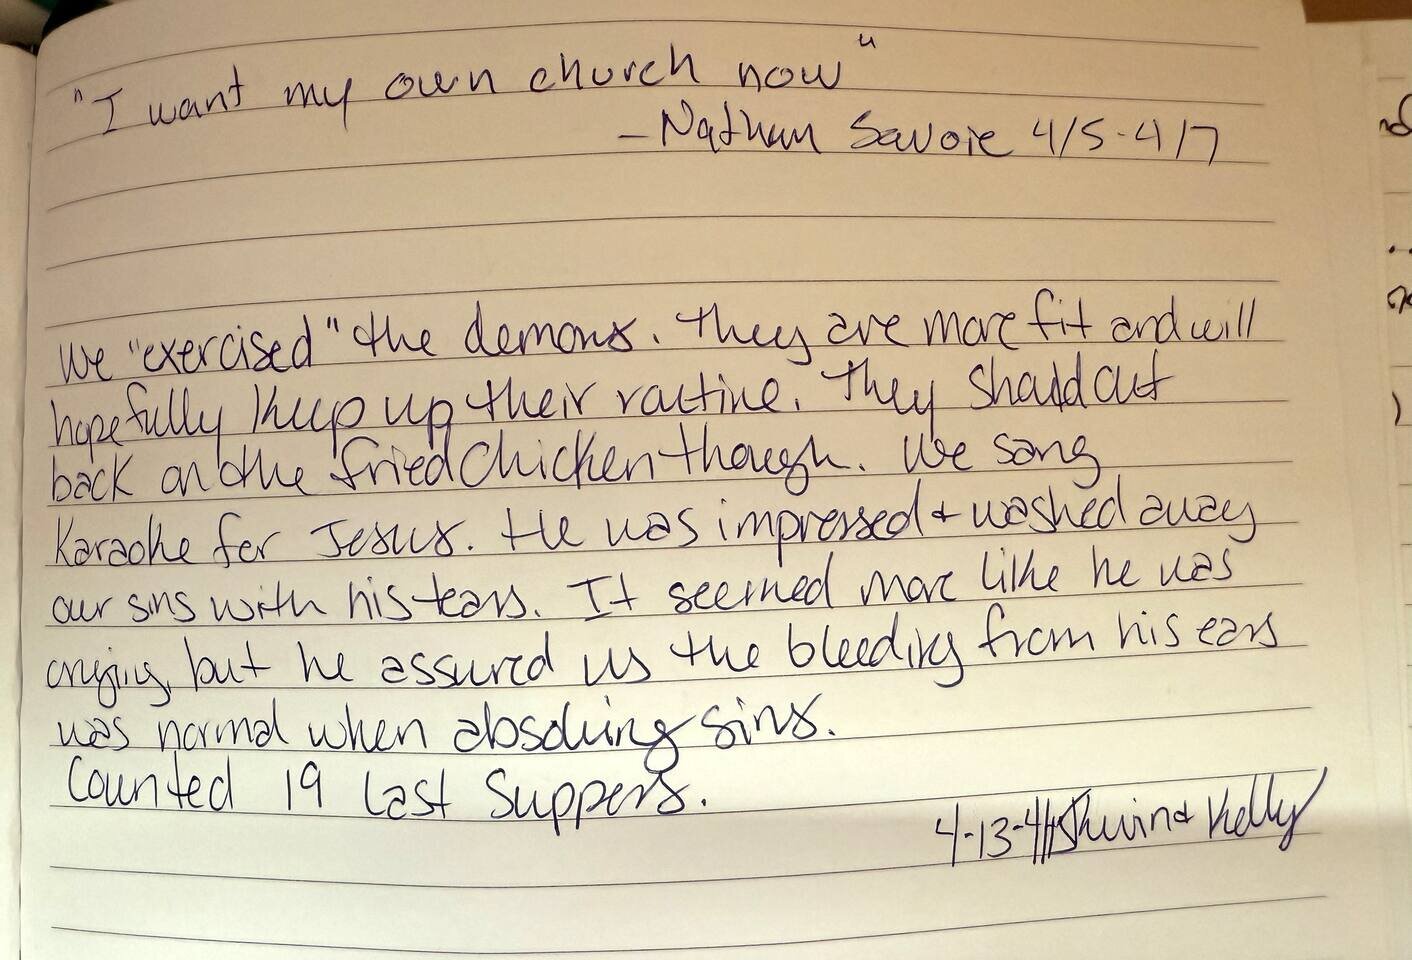 "I want my own church now"
- Nathan Savoie 4/5-4/7
We "exercised" the demons. They are more fit and will
hopefully keep up their routine. They should cut
back on the fried chicken though. We sang
Karaoke for Jesus. He was impressed & washed away
our sins with his tears. It seemed more like he was
crying, but he assured us the bleeding from his ears
was normal when absolving sins.
Counted 19 Last Suppers.
4-13-4/15 Kevin & Kelly